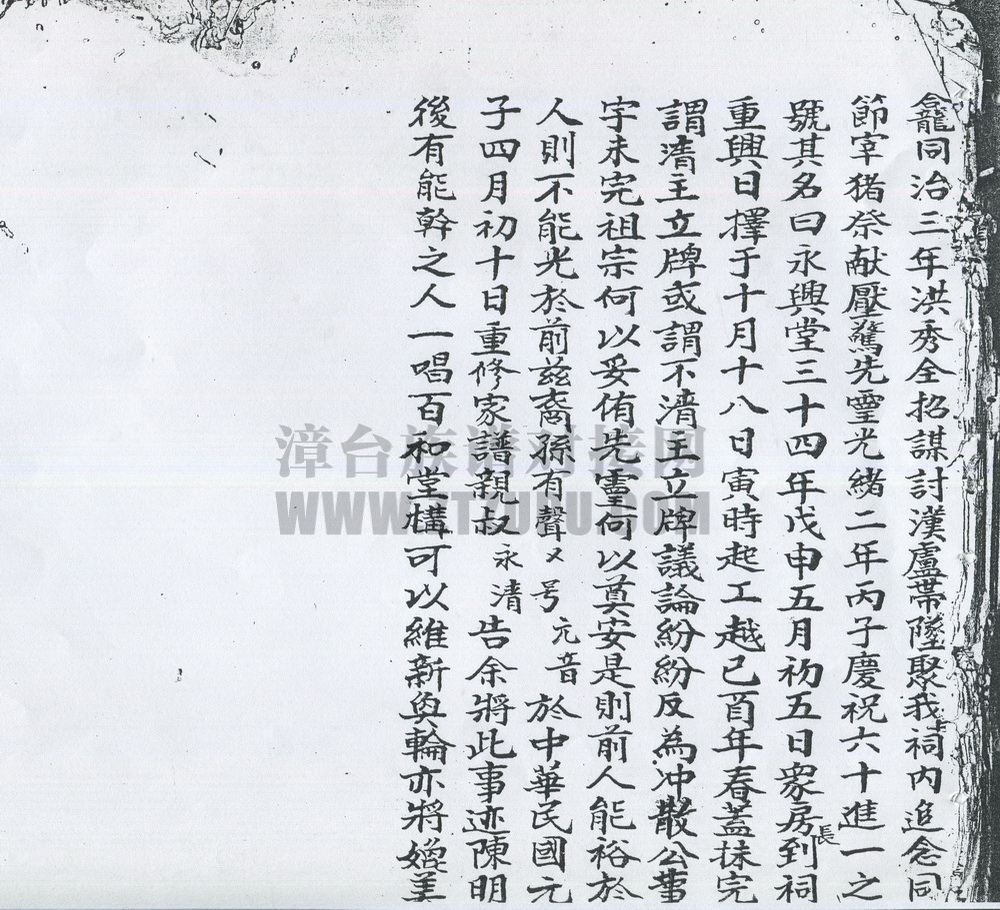 龕同治三年洪秀全招謀討漢盧帶墜聚我祠内追念同
節宰猪祭献壓驚先靈光緒二年丙子慶祝六十進一之
號其名曰永興堂三十四年戊申五月初五日衆房長到祠
重興日擇于十月十八日寅時起工越己酉年春蓋抹完
謂清主立牌或謂不清主立牌議論紛紛反為冲散公事
宇未完祖宗何以妥侑先靈何以奠安是則前人能裕於
人則不能光於前兹裔孫有聲又号元音於中華民國元
子四月初十日重修家譜親叔永清告余將此事迹陳明
後有能幹之人一唱百和堂構可以維新奐輪亦將媲美
漳台族谱对接网
WWW.ZTZUPU.COM